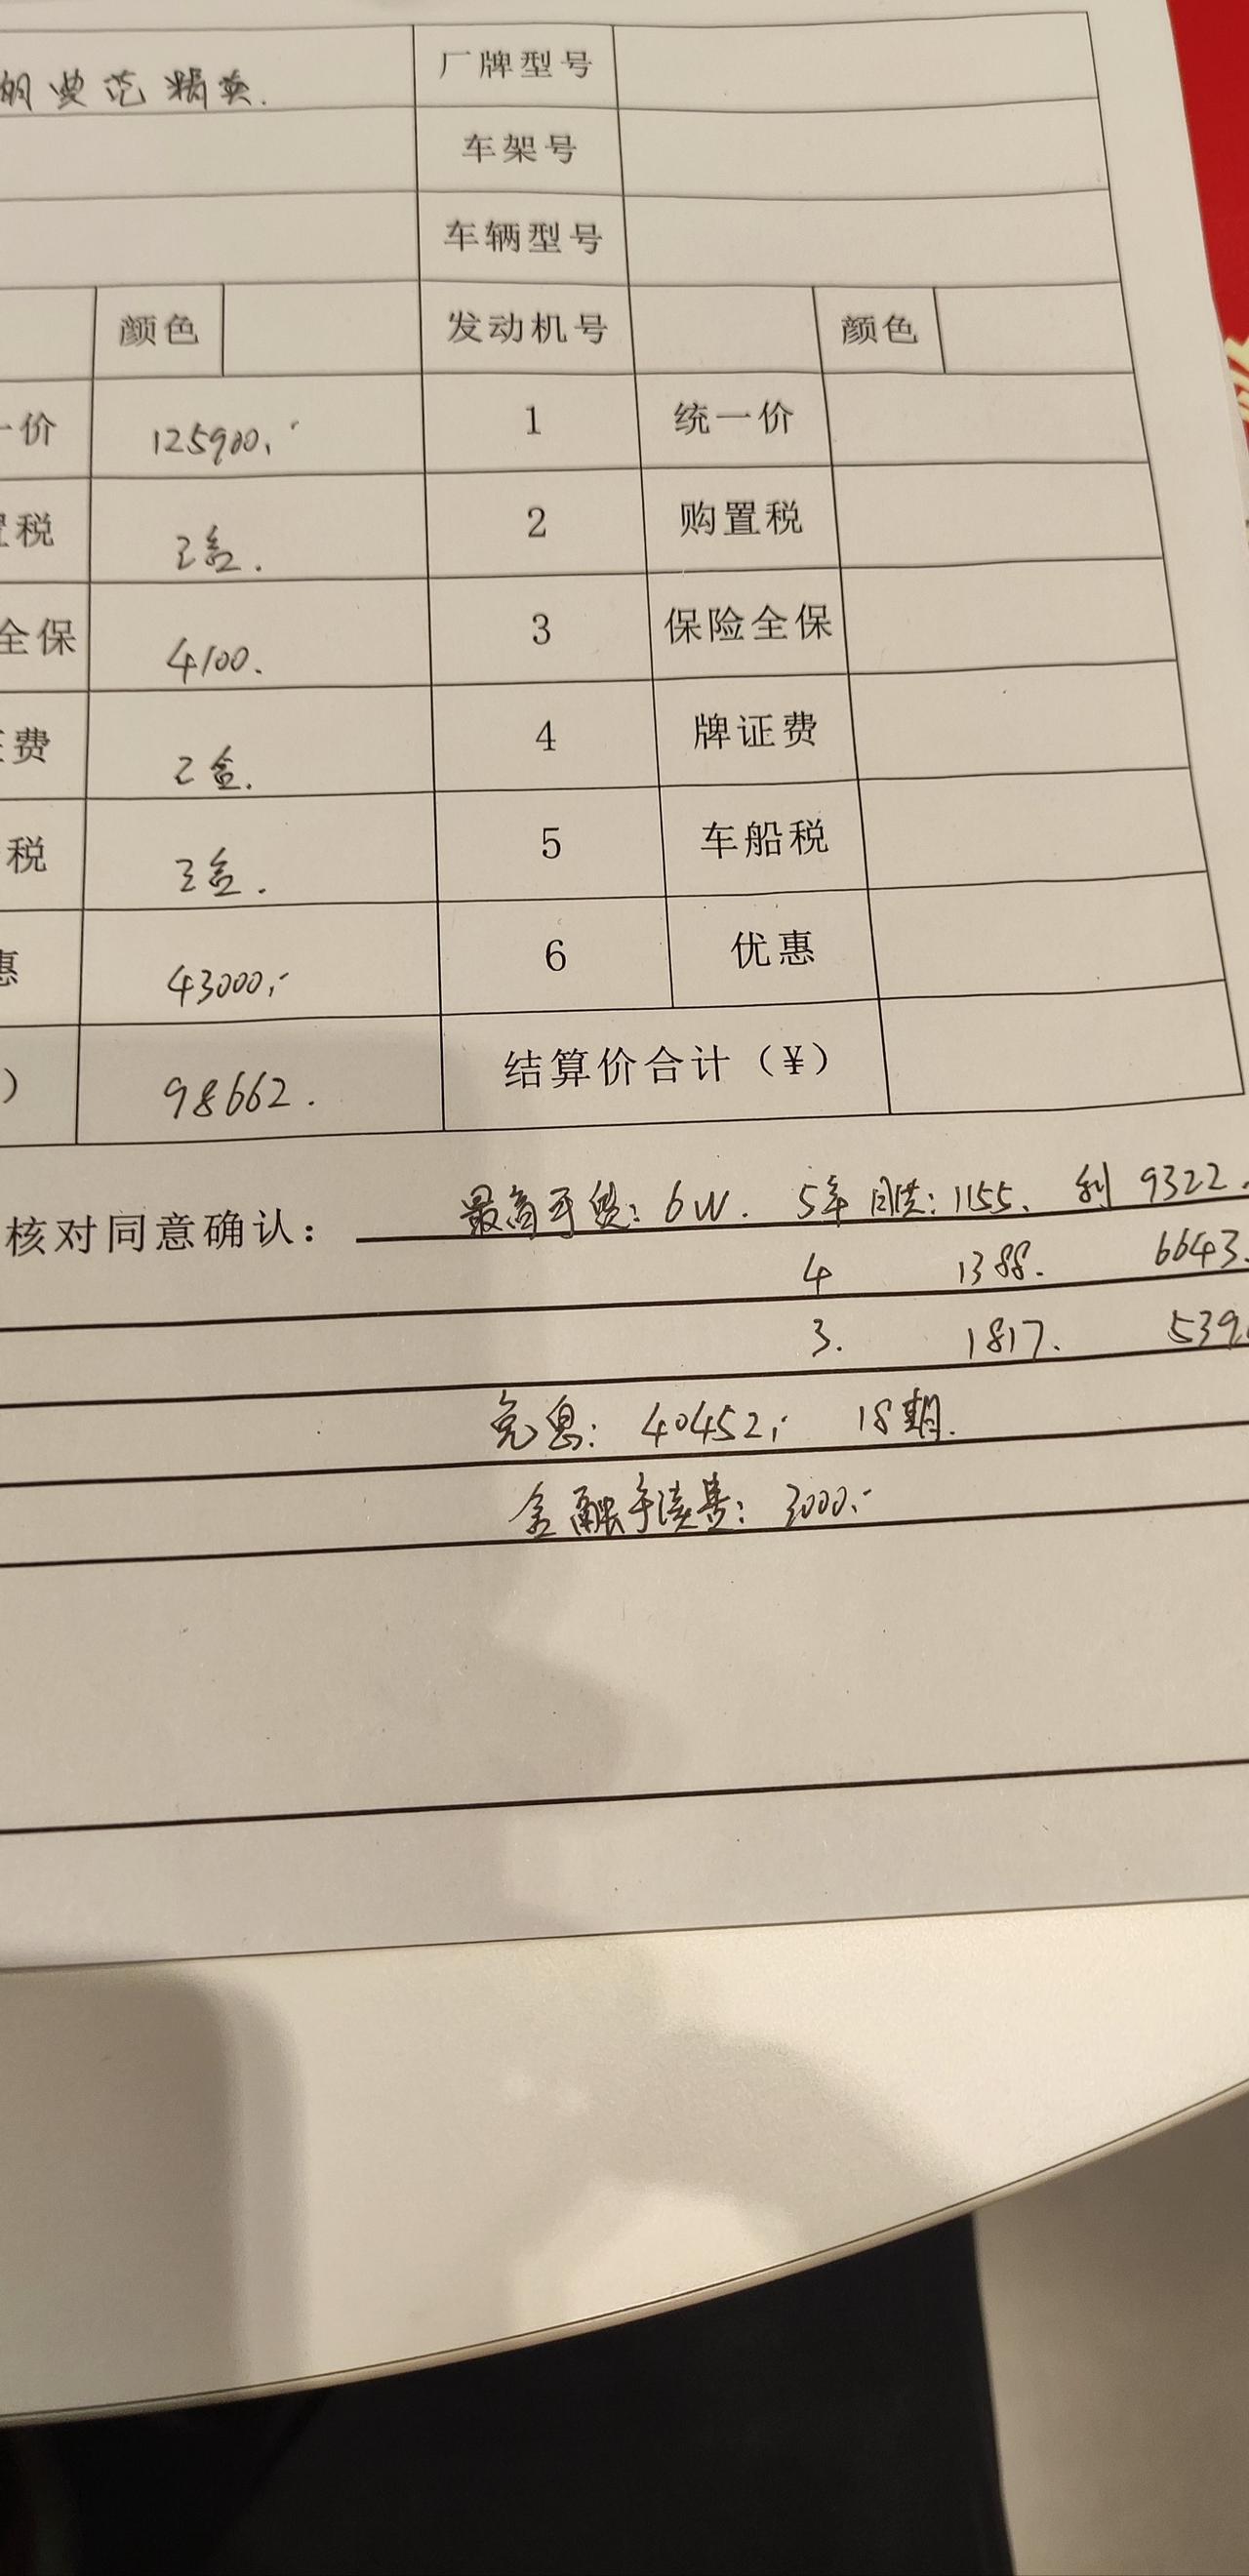 朗 典范 精英. 厂牌型号
车架号
车辆型号
颜色 发动机号 颜色
一价 125900. 1 统一价
置税 已含. 2 购置税
全保 4100. 3 保险全保
证费 已含. 4 牌证费
税 已含. 5 车船税
惠 43000.- 6 优惠
) 98662. 结算价合计（¥）
核对同意确认： 最高可贷: 6W. 5年 月供: 1155. 利 9322.
4 1388. 6643.
3. 1817. 539
免息: 40452.- 18期.
金融手续费: 3000.-